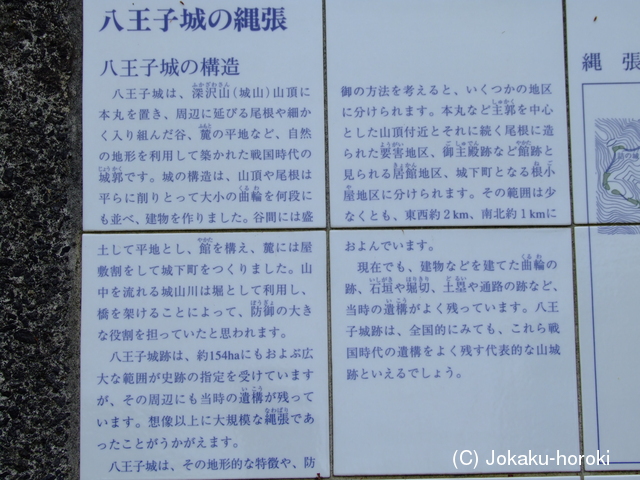 八王子城の縄張
八王子城の構造
八王子城は、深沢山(城山)山頂に
本丸を置き、周辺に延びる尾根や細か
く入り組んだ谷、麓の平地など、自然
の地形を利用して築かれた戦国時代の
城郭です。城の構造は、山頂や尾根は
平らに削りとって大小の曲輪を何段に
も並べ、建物を作りました。谷間には盛
土して平地とし、館を構え、麓には屋
敷割をして城下町をつくりました。山
中を流れる城山川は堀として利用し、
橋を架けることによって、防御の大き
な役割を担っていたと思われます。
八王子城跡は、約154haにもおよぶ広
大な範囲が史跡の指定を受けています
が、その周辺にも当時の遺構が残って
います。想像以上に大規模な縄張であ
ったことがうかがえます。
八王子城は、その地形的な特徴や、防
御の方法を考えると、いくつかの地区
に分けられます。本丸など主郭を中心
とした山頂付近とそれに続く尾根に造
られた要害地区、御主殿跡など館跡と
見られる居館地区、城下町となる根小
屋地区に分けられます。その範囲は少
なくとも、東西約2km、南北約1kmに
およんでいます。
現在でも、建物などを建てた曲輪の
跡、石垣や堀切、土塁や通路の跡など、
当時の遺構がよく残っています。八王
子城跡は、全国的にみても、これら戦
国時代の遺構をよく残す代表的な山城
跡といえるでしょう。
縄張
(C) Jokaku-horoki